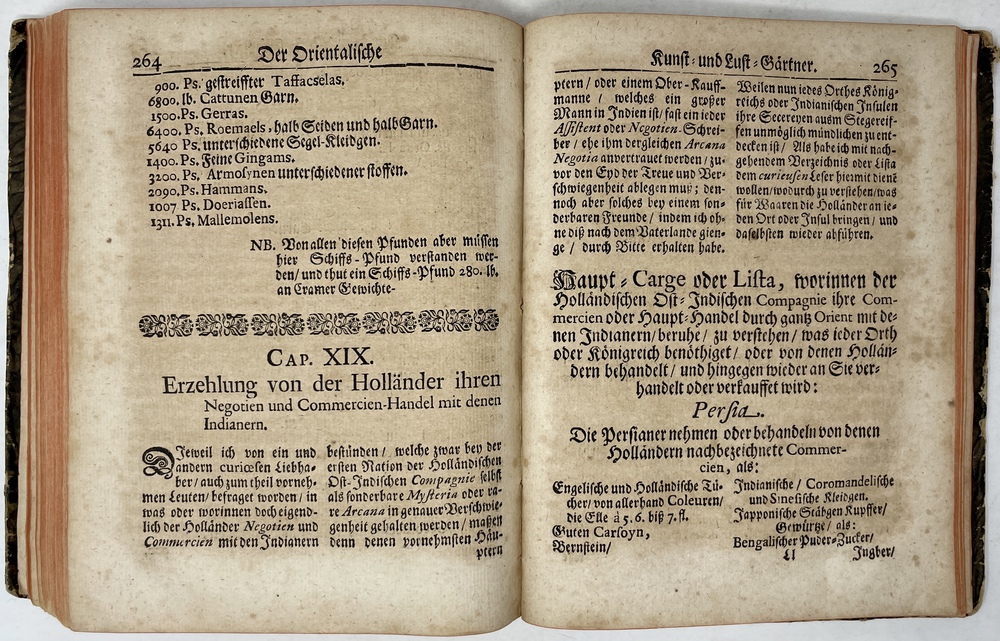 264
Der Orientalische
900. Ps. gestreiffter Taffacselas.
6800. lb. Cattunen Garn.
1500. Ps. Gerras.
6400. Ps. Roemaels, halb Seiden und halb Garn.
5640 Ps. unterschiedene Segel-Kleidgen.
1400. Ps. Feine Gingams.
3200. Ps. Armosynen unterschiedener stoffen.
2090. Ps. Hammans.
1007 Ps. Doeriassen.
1311. Ps. Mallemolens.
NB. Von allen diesen Pfunden aber müssen
hier Schiffs-Pfund verstanden wer-
den/ und thut ein Schiffs-Pfund 280. lb.
an Cramer Gewichte-
CAP. XIX.
Erzehlung von der Holländer ihren
Negotien und Commercien-Handel mit denen
Indianern.
DIeweil ich von ein und
andern curieusen Liebha-
ber/ auch zum theil vorneh-
men Leuten/ befraget worden/ in
was oder worinnen doch eigend-
lich der Holländer Negotien und
Commercien mit den Indianern
bestünden/ welche zwar bey der
ersten Nation der Holländischen
Ost-Indischen Compagnie selbst
als sonderbare Mysteria oder ra-
re Arcana in genauer Verschwie-
genheit gehalten werden/ maßen
denn denen vornehmsten Häu-
ptern
Kunst- und Lust-Gärtner.
265
ptern/ oder einem Ober-Kauff-
manne/ welches ein großer
Mann in Indien ist/ fast ein ieder
Assistent oder Negotien-Schrei-
ber/ ehe ihm dergleichen Arcana
Negotia anvertrauet werden/ zu-
vor den Eyd der Treue und Ver-
schwiegenheit ablegen muß; den-
noch aber solches bey einem son-
derbaren Freunde/ indem ich oh-
ne diß nach dem Vaterlande gien-
ge/ durch Bitte erhalten habe.
Weilen nun iedes Orthes König-
reichs oder Indianischen Insulen
ihre Secereyen ausm Stegereif-
fen unmöglich mündlichen zu ent-
decken ist/ Als habe ich mit nach-
gehendem Verzeichnis oder Lista
dem curieusen Leser hiermit dienē
wollen/ wodurch zu verstehen/ was
für Waaren die Holländer an ie-
den Ort oder Insul bringen/ und
daselbsten wieder abführen.
Haupt-Carge oder Lista, worinnen der
Holländischen Ost-Indischen Compagnie ihre Com-
mercien oder Haupt-Handel durch gantz Orient mit de-
nen Indianern/ beruhe/ zu verstehen/ was ieder Orth
oder Königreich benöthiget/ oder von denen Hollän-
dern behandelt/ und hingegen wieder an Sie ver-
handelt oder verkauffet wird:
Persia.
Die Persianer nehmen oder behandeln von denen
Holländern nachbezeichnete Commer-
cien, als:
Engelische und Holländische Tü-
cher/ von allerhand Coleuren/
die Elle â 5. 6. biß 7. fl.
Guten Carsoyn,
Bernstein/
Indianische/ Coromandelische
und Sinesische Kleidgen.
Japponische Stäbgen Kupffer/
Gewürtze/ als:
Bengalischer Puder-Zucker/
Ll
Ingber/